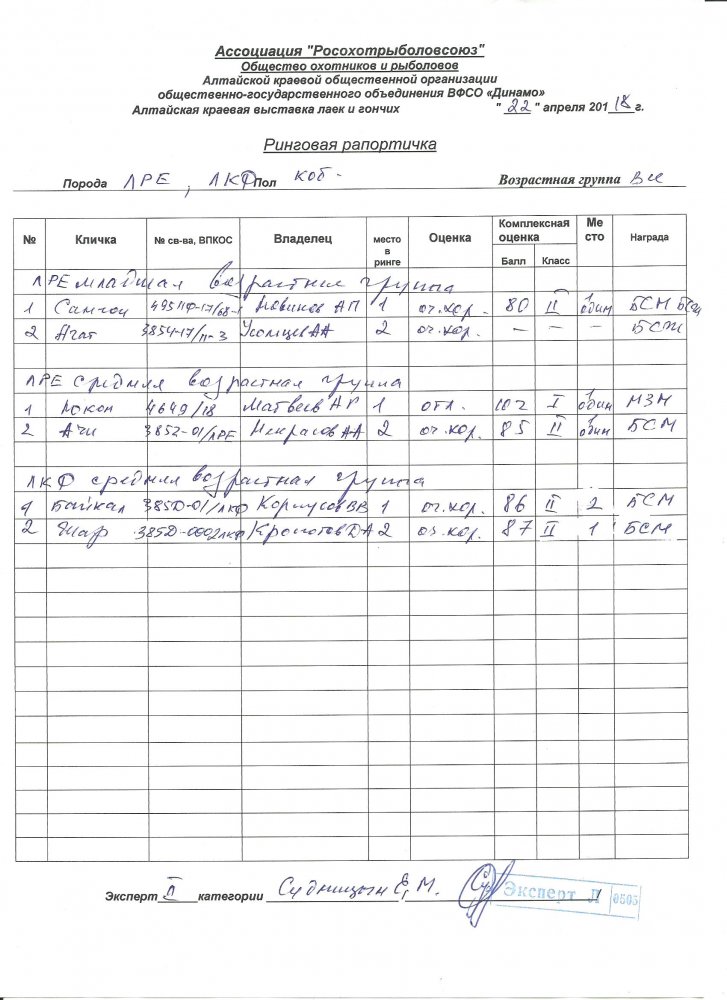 Ассоциация "Росохотрыболовсоюз"
Общество охотников и рыболовов
Алтайской краевой общественной организации
общественно-государственного объединения ВФСО «Динамо»
Алтайская краевая выставка лаек и гончих "22" апреля 2018г.
Ринговая рапортичка
Порода ЛРЕ, ЛКФ Пол коб- Возрастная группа Все
№ Кличка № св-ва, ВПКОС Владелец место в ринге Оценка Комплексная оценка Место Награда
Балл Класс
ЛРЕ младшая возрастная группа
1 АП 1 оч.хор. 80 II 1 один БСМ
2 Агат 3854-17/ АА 2 оч.хор. – – – БСМ
ЛРЕ средняя возрастная группа
1 Локон 4649/18 Матвеев АГ 1 отл. 102 I 1 один МЗМ
2 Ачи 3852-01/ЛРЕ Некрасов АА 2 оч.хор. 85 II 1 один БСМ
ЛКФ средняя возрастная группа
1 Байкал 385D-01/ЛКФ Корпусов ВВ 1 оч.хор. 86 II 2 БСМ
2 385D-0002ЛКФ Кропотов DA 2 оч.хор. 87 II 1 БСМ
Эксперт II категории Судницын Е.М. Эксперт Л 0505